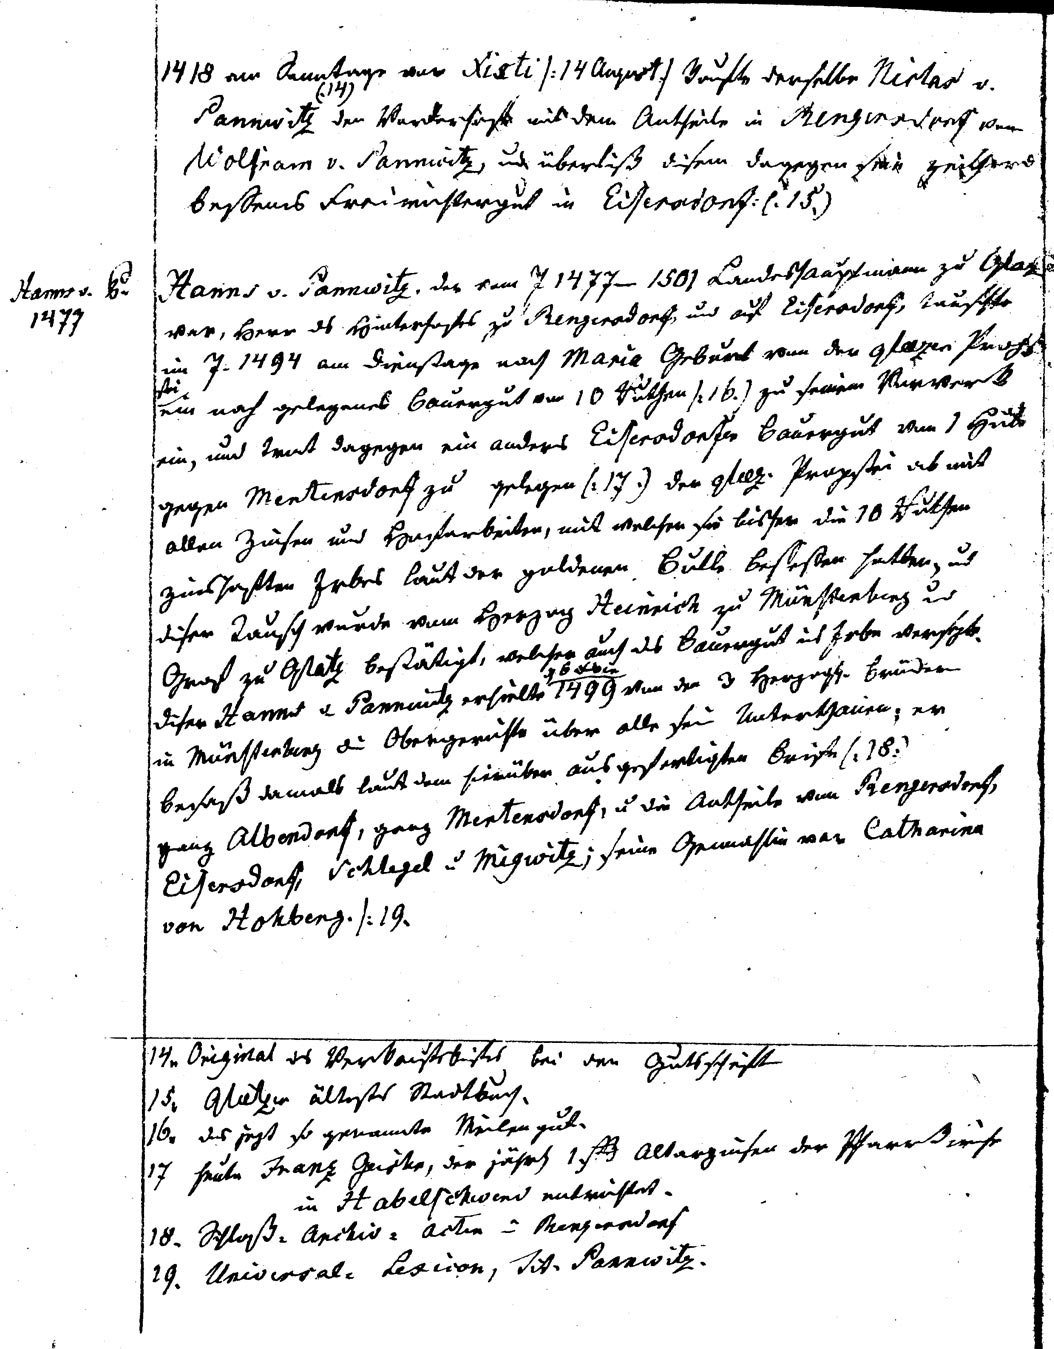 1418 am Sonntage vor Xisti /:14 August:/ kaufte derselbe Niclas v.
(:14)
Pannwitz den Vorderhof mit dem Antheile in Rengersdorf vom
Wolfram v. Pannwitz, und überließ disem dagegen sein zeither
besessenes Freirichtergut in Eisersdorf: (:15.)
Hanns v. P.
1477
Hanns v. Pannwitz, der vom J 1477 – 1501 Landeshauptmann zu Glatz
war, Herr des Hinterhofes zu Rengersdorf, und auf Eisersdorf, tauschte
im J. 1494 am Dienstage nach Maria Geburt von der glazer Propstei
ein nah gelegenes Bauergut von 10 Ruthen /:16.) zu seinem Vorwerk
ein, und trat dagegen ein anderes Eisersdorfer Bauergut von 1 Hube
gegen Mertensdorf zu gelegen (:17.) der glaz. Propstei ab mit
allen Zinsen und Hofarbeiten, mit welchen sie bisher die 10 Ruthen
zinshaften Erbes laut der goldenen Bulle besessen hatten, und
diser Tausch wurde vom Herzog Heinrich zu Münsterberg und
Graf zu Glatz bestätigt, welcher auch das Bauergut ins Erbe versetzte.
Diser Hanns v Pannwitz erhielte 1499 von den 3 Herzogl. Brüdern
in Münsterberg die Obergerichte über alle seine Unterthanen; er
besaß damals laut dem hierüber ausgefertigten Briefe (:18.)
ganz Albendorf, ganz Mertensdorf, u die Antheile von Rengersdorf,
Eisersdorf, Schlegel u Migwitz; seine Gemahlin war Catharina
von Hohberg. /:19.
14. Original des Verkaufsbriefes bei den Gutsschrift
15. Glatzer ältestes Stadtbuch.
16. das jezt so genannte Meilengut.
17 heute Franz, der jährl 1 Altarzinsen der Pfarrkirche
in Habelschwerd entrichtet.
18. Schloß-Archiv-Acten in Rengersdorf
19. Universal-Lexicon, Tit. Pannwitz.